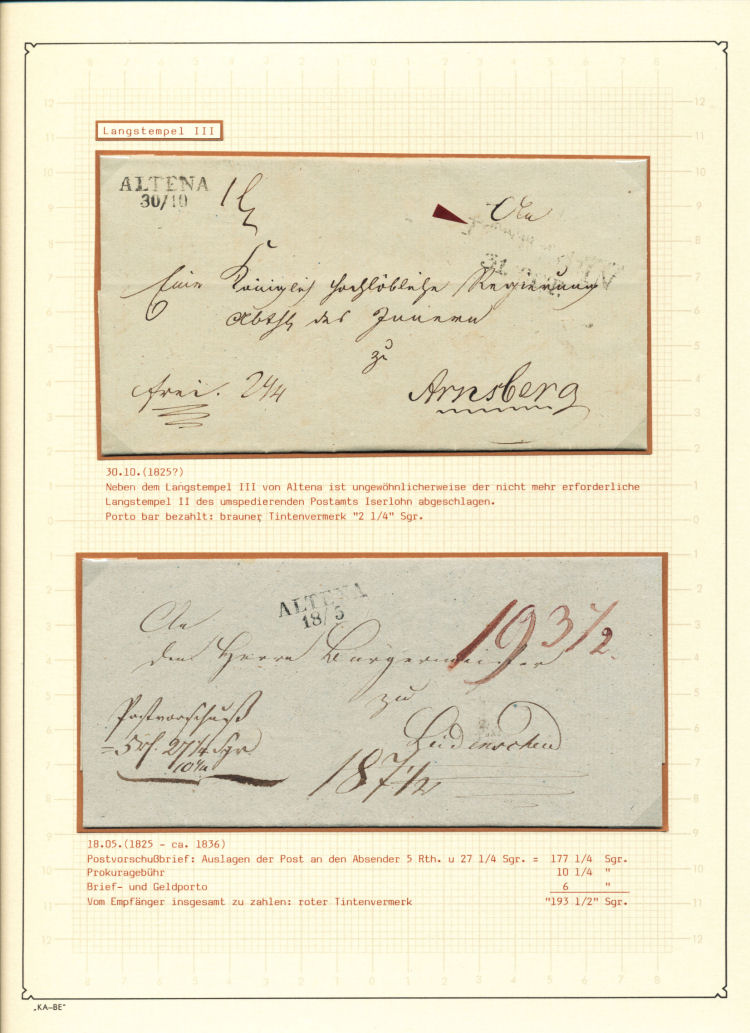 Langstempel III
ALTENA
30/10
An
31
Eine Königlich hochlöbliche Regierung
Abthl des Innern
zu
frei. 2 1/4
Arnsberg
30.10.(1825?)
Neben dem Langstempel III von Altena ist ungewöhnlicherweise der nicht mehr erforderliche
Langstempel II des umspedierenden Postamts Iserlohn abgeschlagen.
Porto bar bezahlt: brauner Tintenvermerk "2 1/4" Sgr.
ALTENA
18/5
An
193 1/2
den Herrn Bürgermeister
zu
Postvorschuß
Lüdenscheid
= 5 rl. 27 1/4 Sgr
10 1/4
187 1/2
18.05.(1825 - ca. 1836)
Postvorschußbrief: Auslagen der Post an den Absender 5 Rth. u 27 1/4 Sgr. = 177 1/4 Sgr.
Prokuragebühr 10 1/4 "
Brief- und Geldporto 6 "
Vom Empfänger insgesamt zu zahlen: roter Tintenvermerk "193 1/2" Sgr.
„KA–BE“